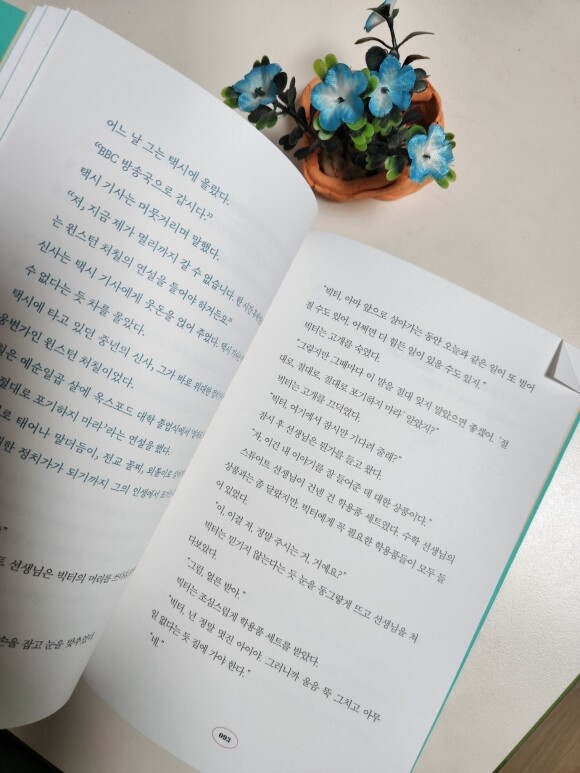 어느 날 그는 택시에 올랐다.
“BBC 방송국으로 갑시다.”
택시 기사는 머뭇거리며 말했다.
“저, 지금 제가 멀리까지 갈 수 없습니다. 한 시간
는 윈스턴 처칠의 연설을 들어야 하거든요.”
신사는 택시 기사에게 웃돈을 얹어 주었다. 택시
수 없다는 듯 차를 몰았다.
택시에 타고 있던 중년의 신사, 그가 바로 위대한
웅변가인 윈스턴 처칠이었다.
은 예순일곱 살에 옥스포드 대학 졸업식에서
절대로 포기하지 마라’라는 연설을 했다.
로 태어나 말더듬이, 전교 꼴찌, 외톨이로
대한 정치가가 되기까지 그의 인생에서
선생님은 빅터의 머리를
손을 잡고 눈을 맞추었다.
“빅터, 아마 앞으로 살아가는 동안 오늘과 같은 일이 또 벌어
질 수도 있어. 어쩌면 더 힘든 일이 있을 수도 있지.”
빅터는 고개를 숙였다.
“그렇지만 그때마다 이 말을 절대 잊지 말았으면 좋겠어. ‘절
대로, 절대로, 절대로 포기하지 마라’ 알았지?”
빅터는 고개를 끄덕였다.
“빅터, 여기에서 잠시만 기다려 줄래?”
잠시 후 선생님은 뭔가를 들고 왔다.
“자, 이건 내 이야기를 잘 들어준 데 대한 상품이다.”
스튜어트 선생님이 건넨 건 학용품 세트였다. 수학 선생님의
상품과는 좀 달랐지만, 빅터에게 꼭 필요한 학용품들이 모두 들
어 있었다.
“이, 이걸 저, 정말 주시는 거, 거예요?”
빅터는 믿기지 않는다는 듯 눈을 동그랗게 뜨고 선생님을 쳐
다보았다.
“그럼, 얼른 받아.”
빅터는 조심스럽게 학용품 세트를 받았다.
“빅터, 넌 정말 멋진 아이야. 그러니까 울음 뚝 그치고 아무
일 없다는 듯 집에 가야 한다.”
“네.”
093